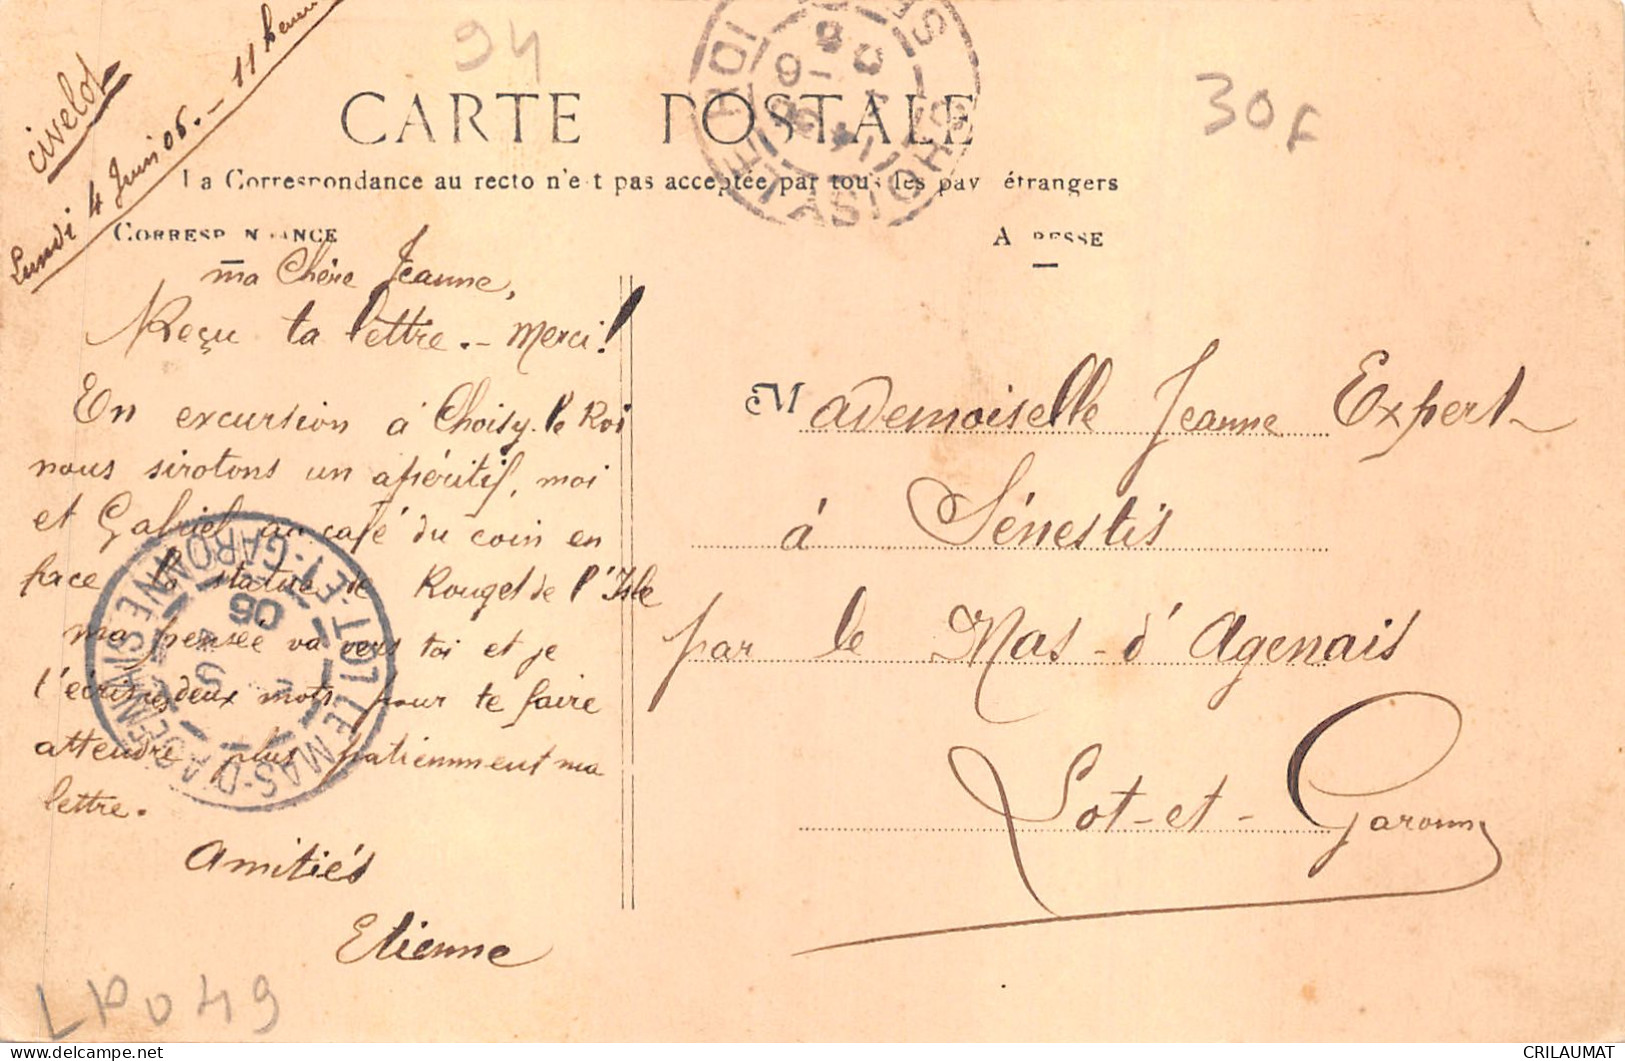 civelot
Lundi 4 Juin 06. - 11 heures
94
30F
CARTE POSTALE
La Correspondance au recto n'est pas acceptée par tous les pays étrangers
CORRESPONDANCE
ADRESSE
ma Chère Jeanne,
Reçu ta lettre. - Merci!
En excursion à Choisy-le Roi
nous sirotons un apéritif, moi
et Gabriel au café du coin en
face la statue de Rouget de l'Isle
ma pensée va vers toi et je
t'écris deux mots pour te faire
attendre plus patiemment ma
lettre.
Amitiés
Etienne
Mademoiselle Jeanne Expert
à Sénestis
par le Mas-d'Agenais
Lot-et-Garonne
LE MAS-D'AGENAIS LOT-ET-GARONNE
06
LPO49
CRILAUMAT